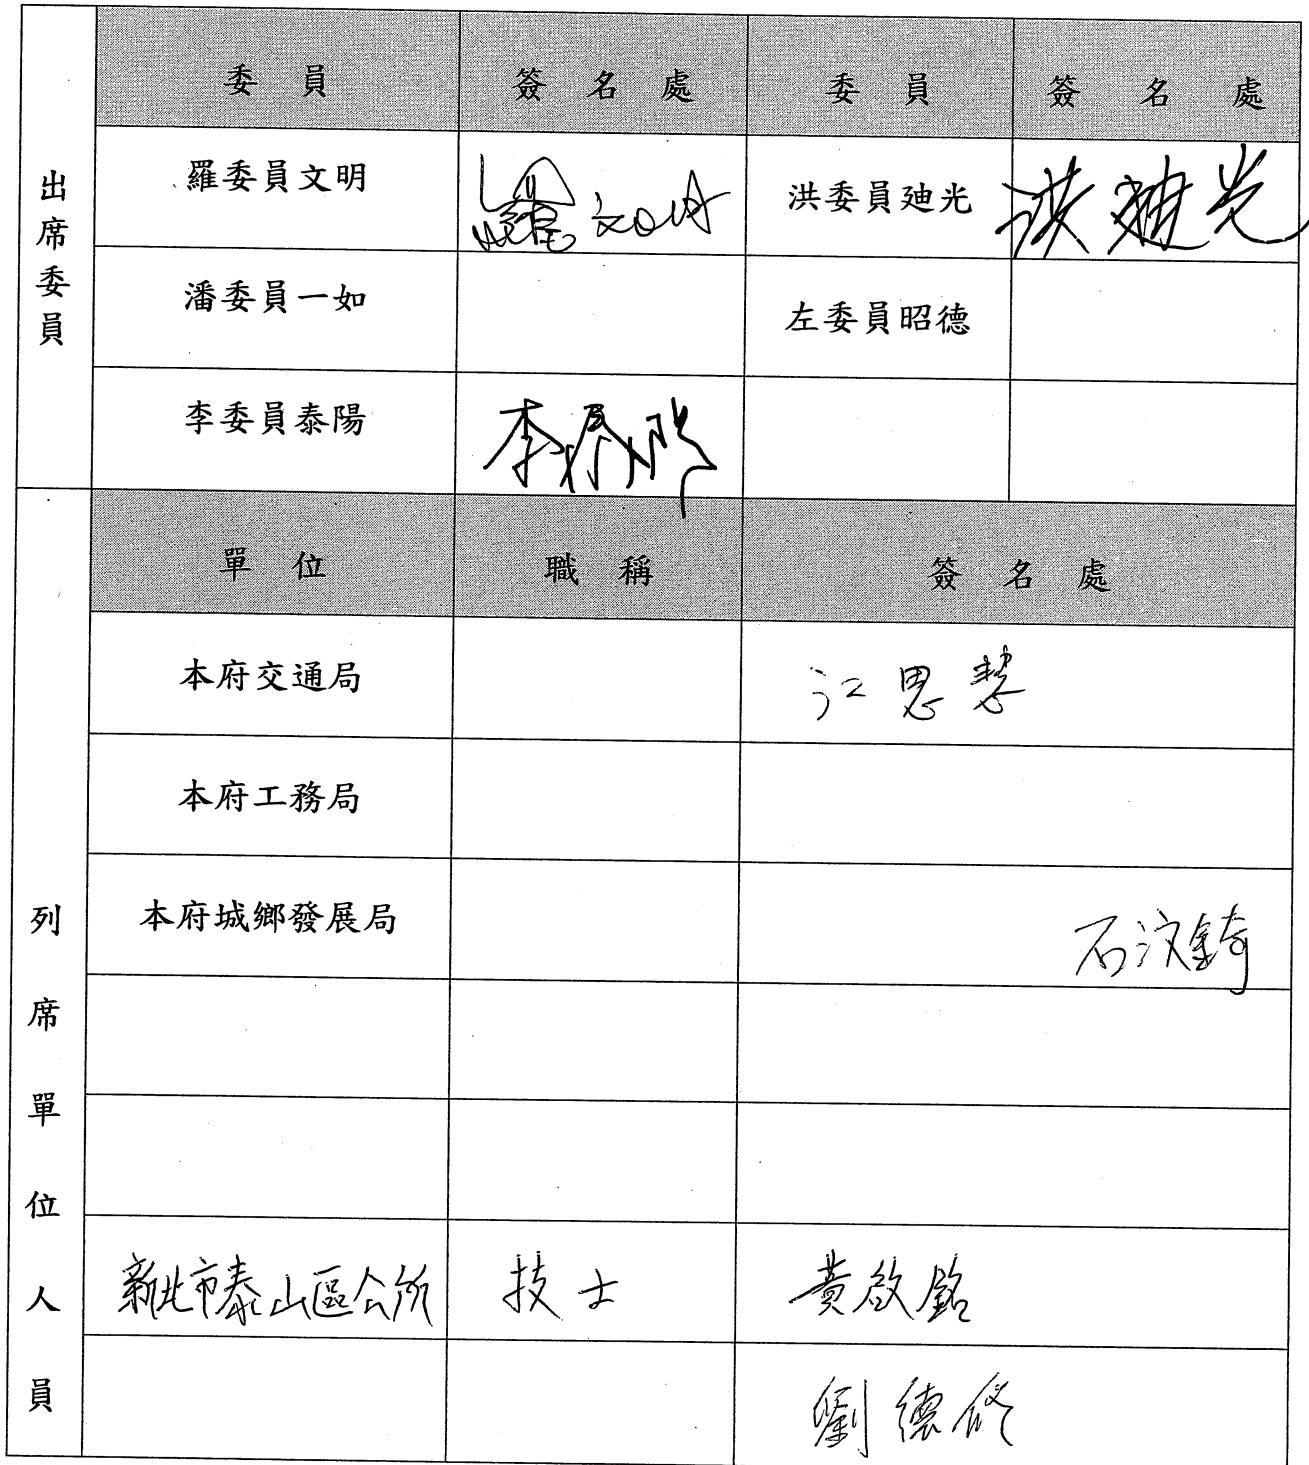 出席委員
委員 簽名處 委員 簽名處
羅委員文明 羅文明 洪委員廸光 洪廸光
潘委員一如 左委員昭德
李委員泰陽 李泰陽
列席單位人員
單位 職稱 簽名處
本府交通局 江思慧
本府工務局
本府城鄉發展局 石汶錡
新北市泰山區公所 技士 黃啟銘
劉德修